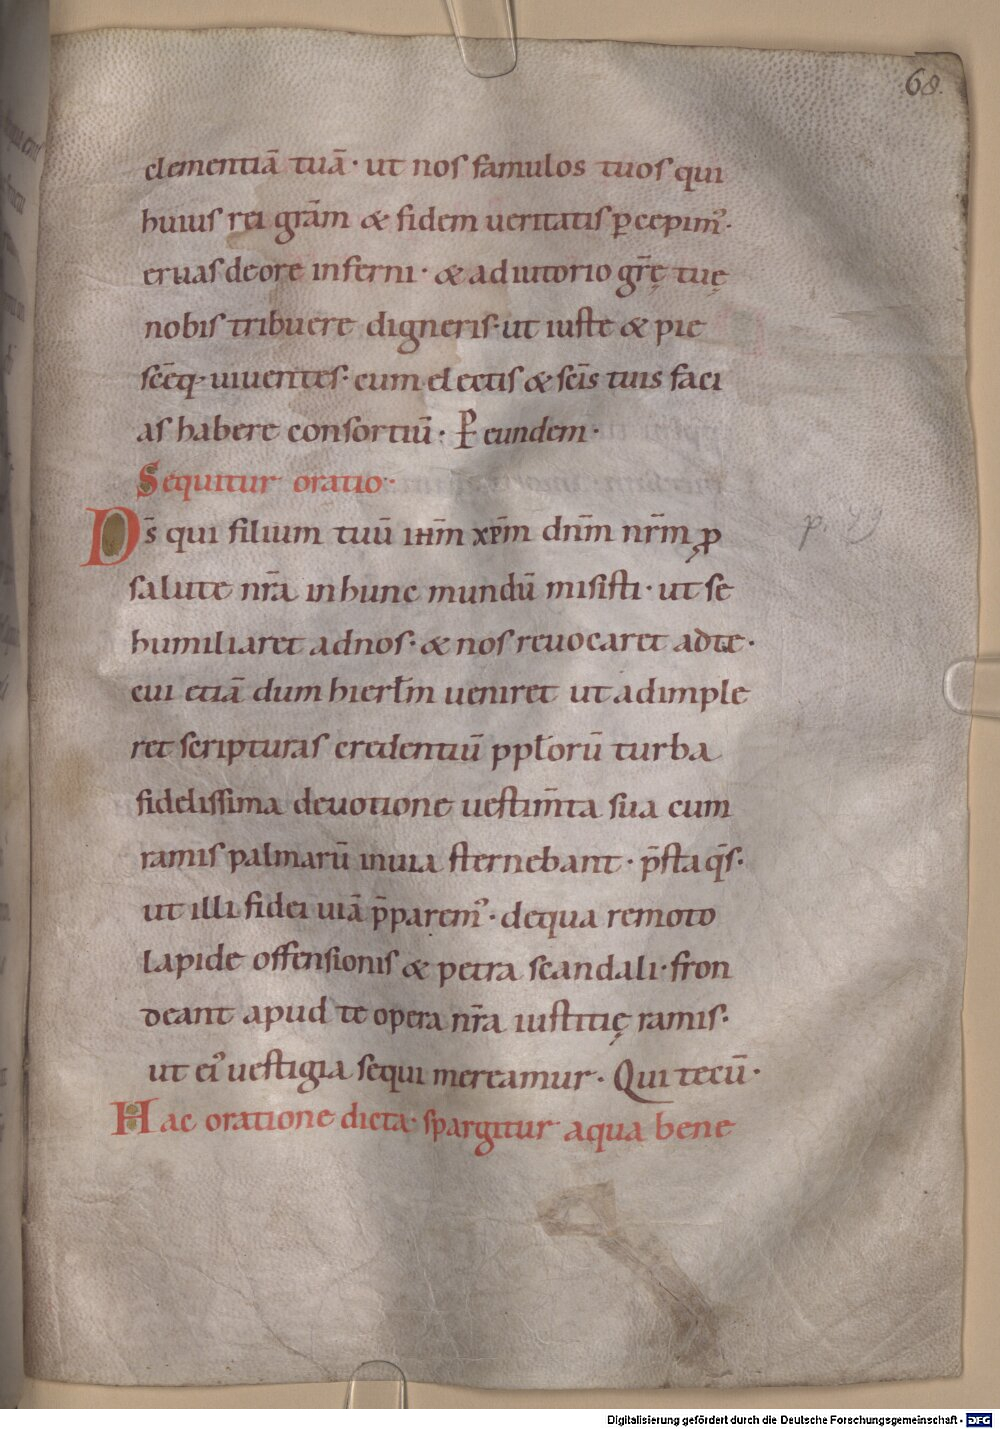 68.
clementiā tuā· ut nos famulos tuos qui
huius rei grām & fidem ueritatis ꝑcepim᷒·
eruas de ore inferni· & adiutorio gr̄ę tuę
nobis tribuere digneris· ut iuste & pie
sc̄eq· uiuentes· cum electis & sc̄is tuis faci
as habere consortiū· P̱ eundem·
Sequitur oratio·
D̄s qui filium tuū ihm̄ xp̄m dnm̄ nr̄m ꝓ
salute nr̄a in hunc mundū misisti· ut se
humiliaret ad nos· & nos reuocaret ad te·
cui etiā dum hierłm ueniret ut adimple
ret scripturas credentiū ppłorū turba
fidelissima deuotione uestim̄ta sua cum
ramis palmarū in uia sternebant· p̄sta qs̄·
ut illi fidei uiā p̄parem᷒· de qua remoto
lapide offensionis & petra scandali· fron
deant apud te opera nr̄a iustitię ramis·
ut ei᷒ uestigia sequi mereamur· Qui tecū·
Hac oratione dicta· spargitur aqua bene
Digitalisierung gefördert durch die Deutsche Forschungsgemeinschaft - DFG